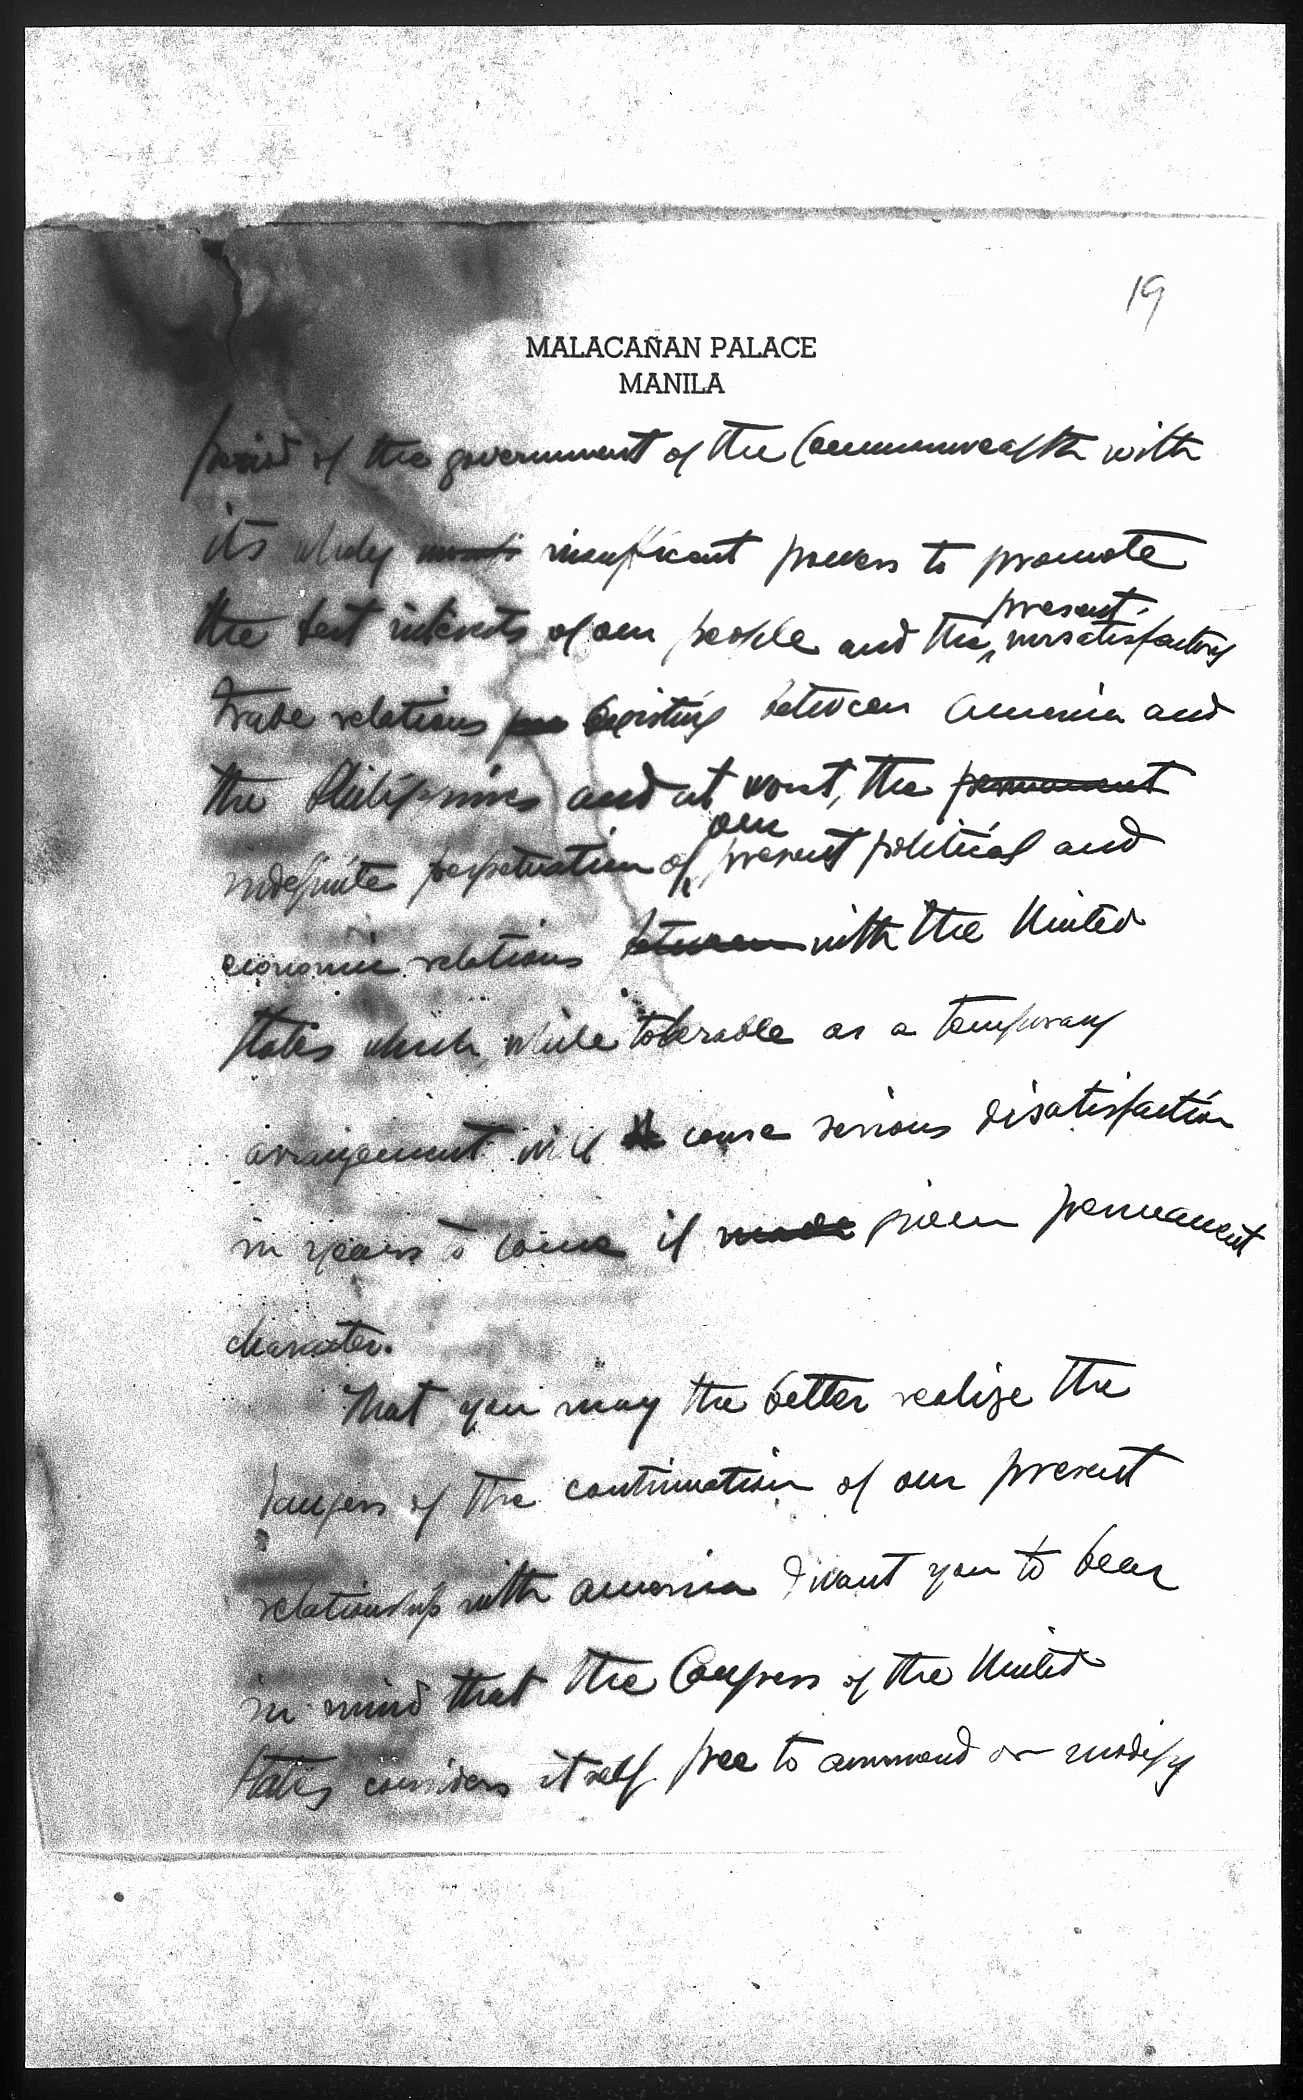 19
MALACAÑAN PALACE
MANILA
period of the government of the Commonwealth with
its wholy insuficant powers to promote
the best interests of our people and the present unsatisfactory
trade relations existing between America and
the Philippines and at worst, the permanent
indefinite perpetuation of our present political and
economic relations between with the United
States which while tolerable as a temporary
arrangement will cause serious disatisfaction
in years to come if made given permanent
character.
That you may the better realize the
dangers of the continuation of our present
relationship with America I want you to bear
in mind that the Congress of the United
States considers itself free to ammend or modify